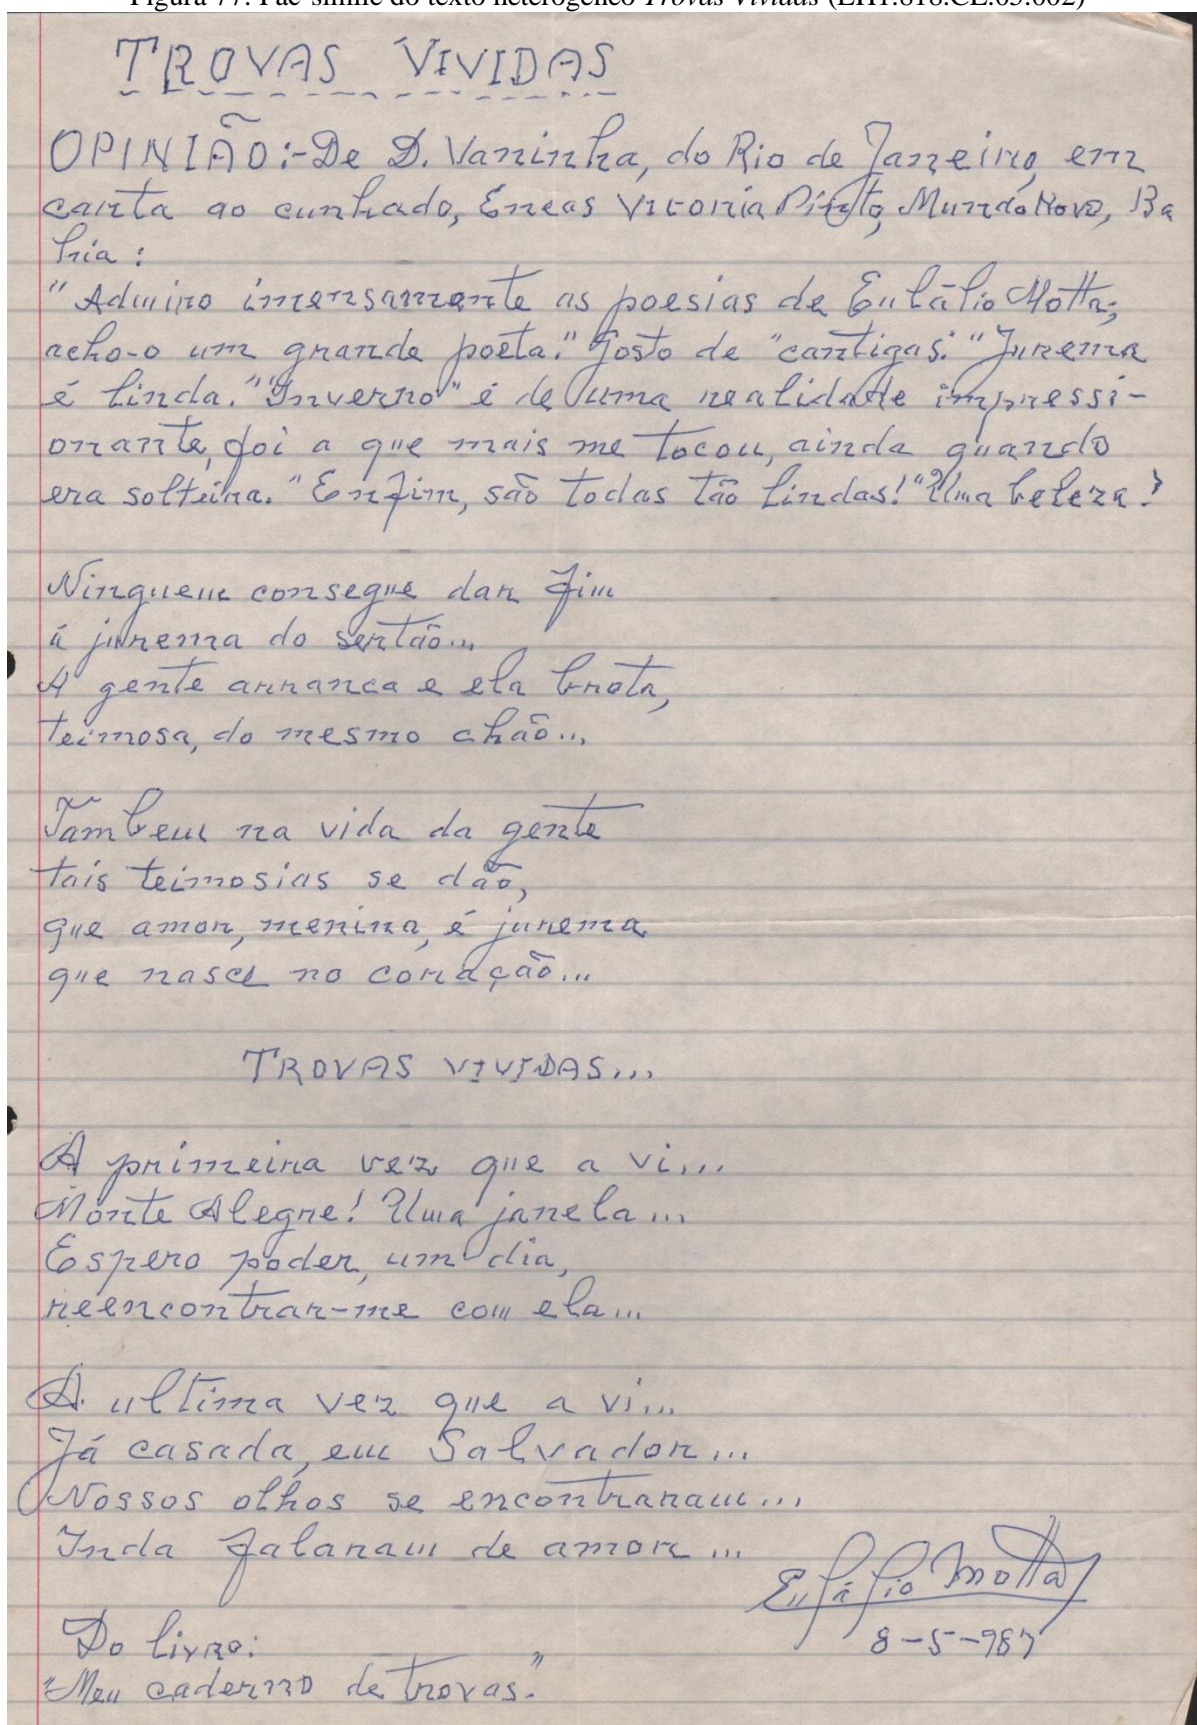 Figura 77: Fac-símile do texto heterogêneo Trovas Vividas (EH1.818.CL.05.002)
TROVAS VIVIDAS
OPINIÃO:-De D. Vaninha, do Rio de Janeiro, em
carta ao cunhado, Eneas Vitoria Pinto, Mundo Novo, Ba
hia:
"Admiro imensamente as poesias de Eulálio Motta;
acho-o um grande poeta." Gosto de "cantigas." "Jurema
é linda. "Inverno" é de uma realidade impressi-
onante, foi a que mais me tocou, ainda quando
era solteira. "Enfim, são todas tão lindas!" Uma beleza!
Ninguem consegue dar fim
á jurema do sertão...
A gente arranca e ela brota,
teimosa, do mesmo chão...
Tambem na vida da gente
tais teimosias se dão,
que amor, menina, é jurema
que nasce no coração...
TROVAS VIVIDAS...
A primeira vez que a vi...
Monte Alegre! Uma janela...
Espero poder, um dia,
reencontrar-me com ela...
A ultima vez que a vi...
Já casada, em Salvador...
Nossos olhos se encontraram...
Inda falaram de amor...
Eulálio Motta
8-5-987
Do livro:
"Meu caderno de trovas."